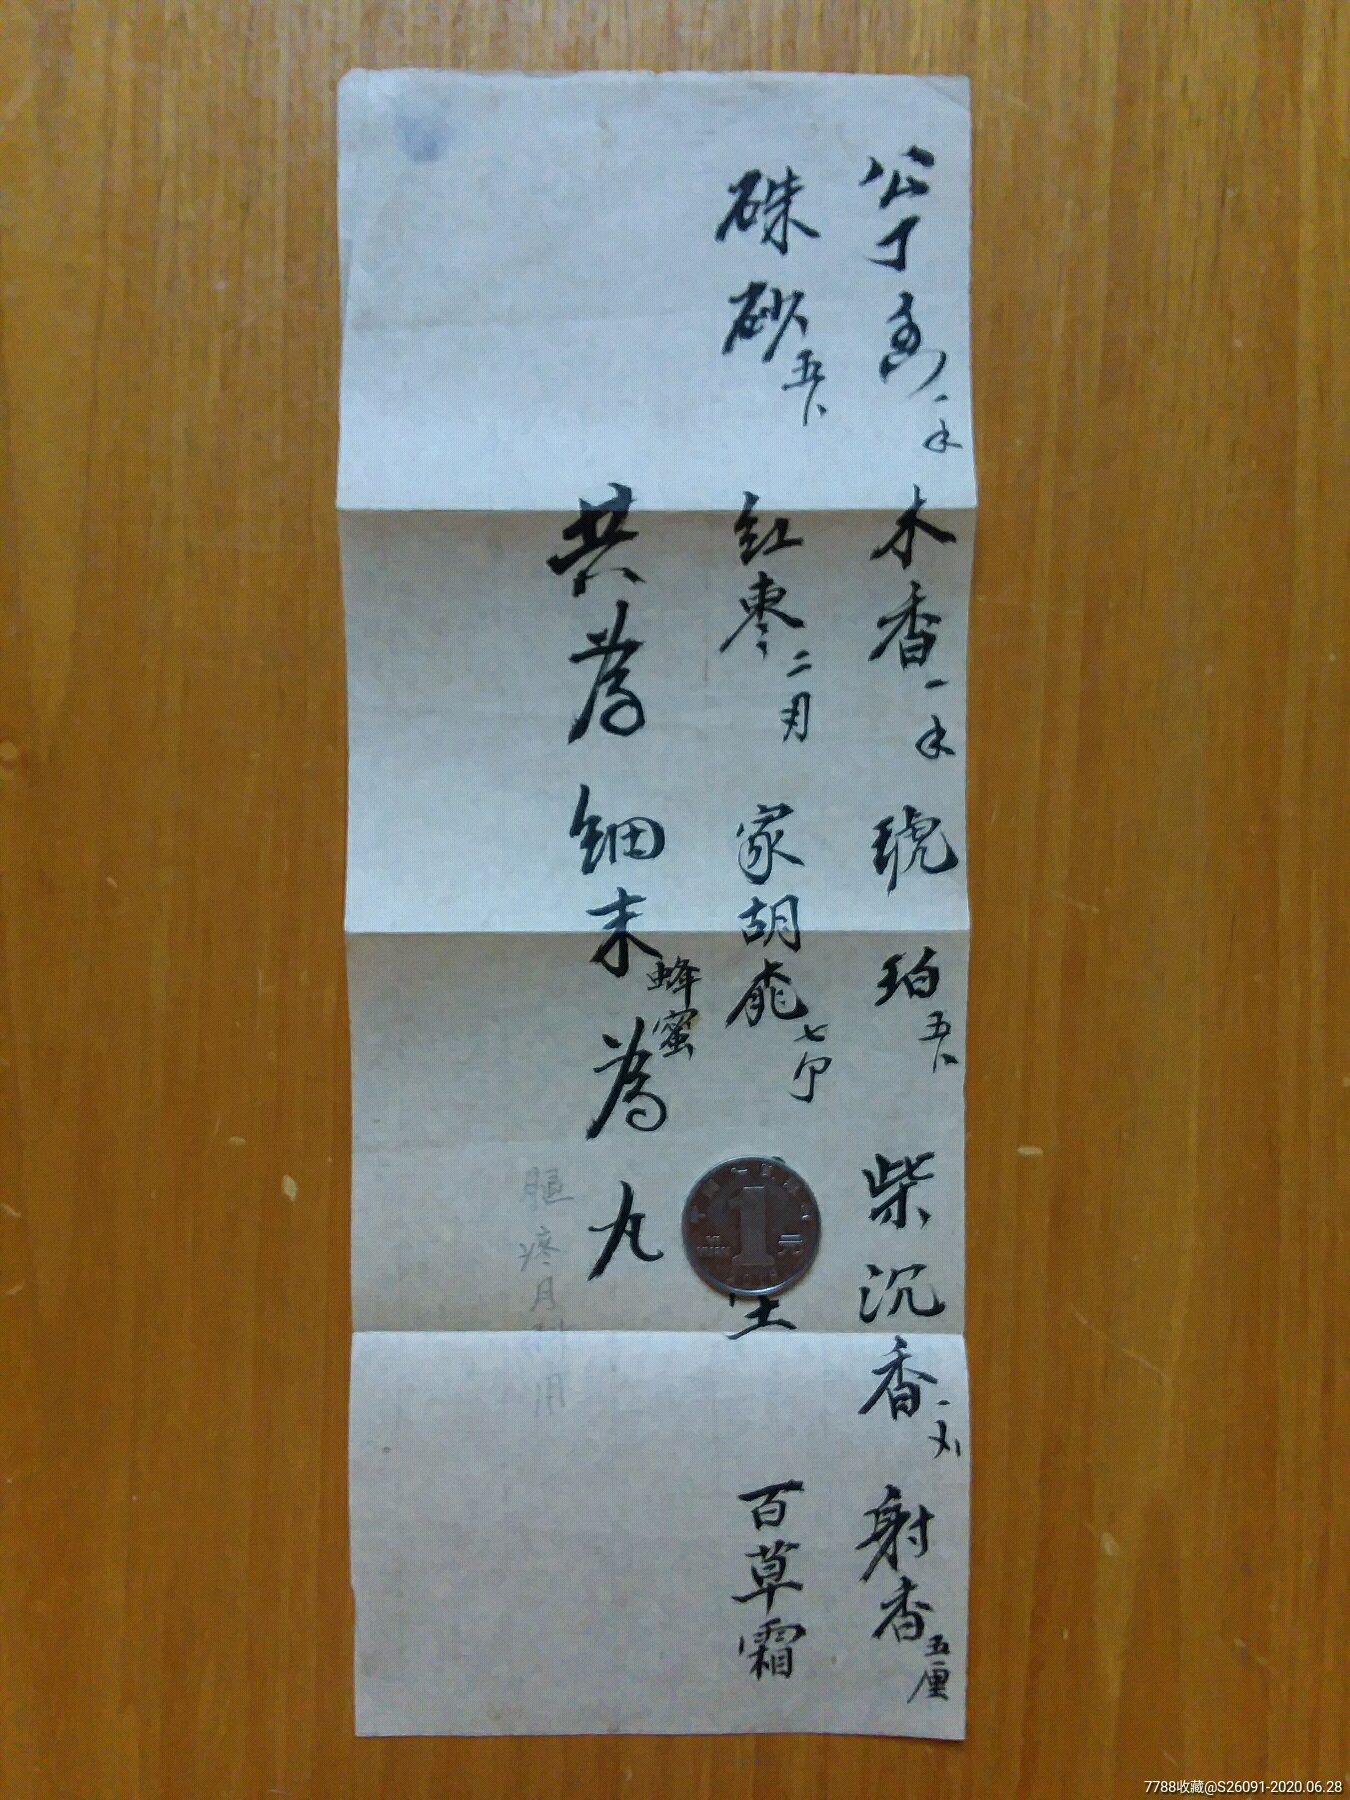 公丁香一钱 木香一钱 琥珀五分 柴沉香一钱 射香五厘
硃砂五分 红枣二两 家胡 七个 百草霜
共為细末蜂蜜為丸
腿疼 月 用
1 元
7788收藏@S26091-2020.06.28